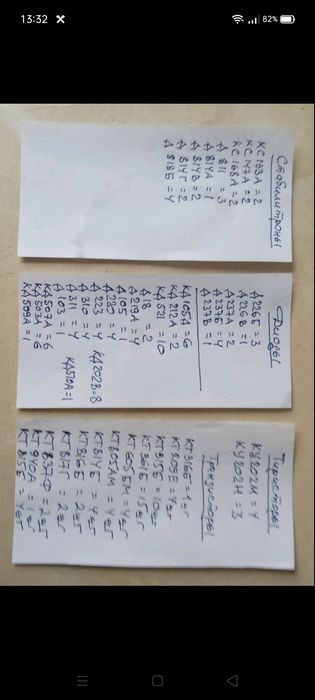 13:32
82%
Стабилитроны
КС133А = 2
КС147А = 2
КС168А = 2
Д 811 = 3
Д 814А = 1
Д 814В = 2
Д 814Г = 2
Д 818Б = 4
Диоды
Д226Б = 3
Д226В = 1
Д237А = 2
Д237Б = 4
Д237В = 1
КД105А = 6
КД212А = 2
КД521 = 10
Д18 = 2
Д219А = 4
Д105 = 1
Д220 = 4 КД202В=8
Д223 = 4
Д310 = 4
Д311 = 4 КД510А=1
Д103 = 1
КД507А = 6
КД503А = 6
КД509А = 1
Тиристоры
КУ202Н = 3
Транзисторы
КТ316Б = 1 шт
КТ315Б = 10шт
КТ361Б = 15шт
КТ605БМ = 4шт
КТ805АМ = 4шт
КТ814Б = 4шт
КТ816Б = 2шт
КТ817Г = 2шт
КТ940А = 1 шт
КТ815Б = 4шт